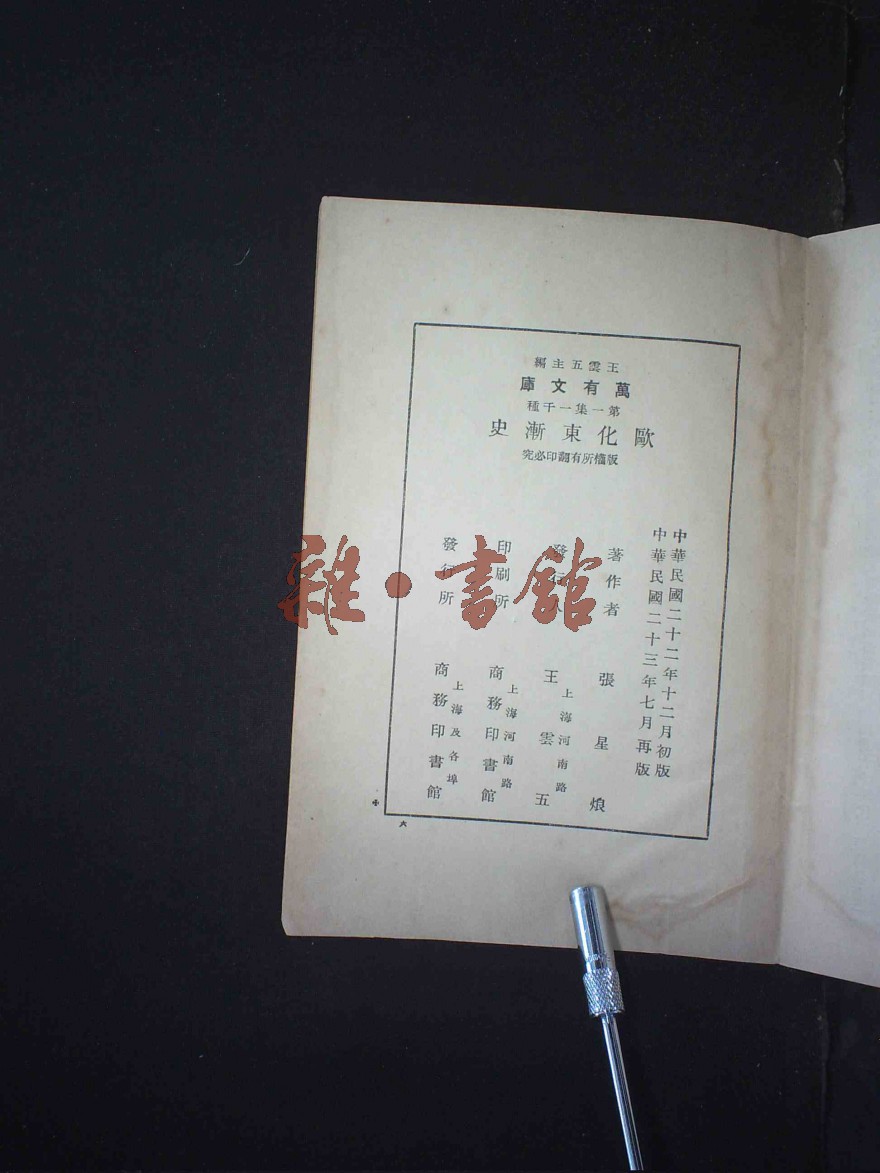 王雲五主編
萬有文庫
第一集一千種
歐化東漸史
版權所有翻印必究
中華民國二十二年十二月初版
中華民國二十三年七月再版
著作者 張星烺
發行人 王雲五
上海河南路
印刷所 商務印書館
上海河南路
發行所 商務印書館
上海及各埠
六
雜·書館